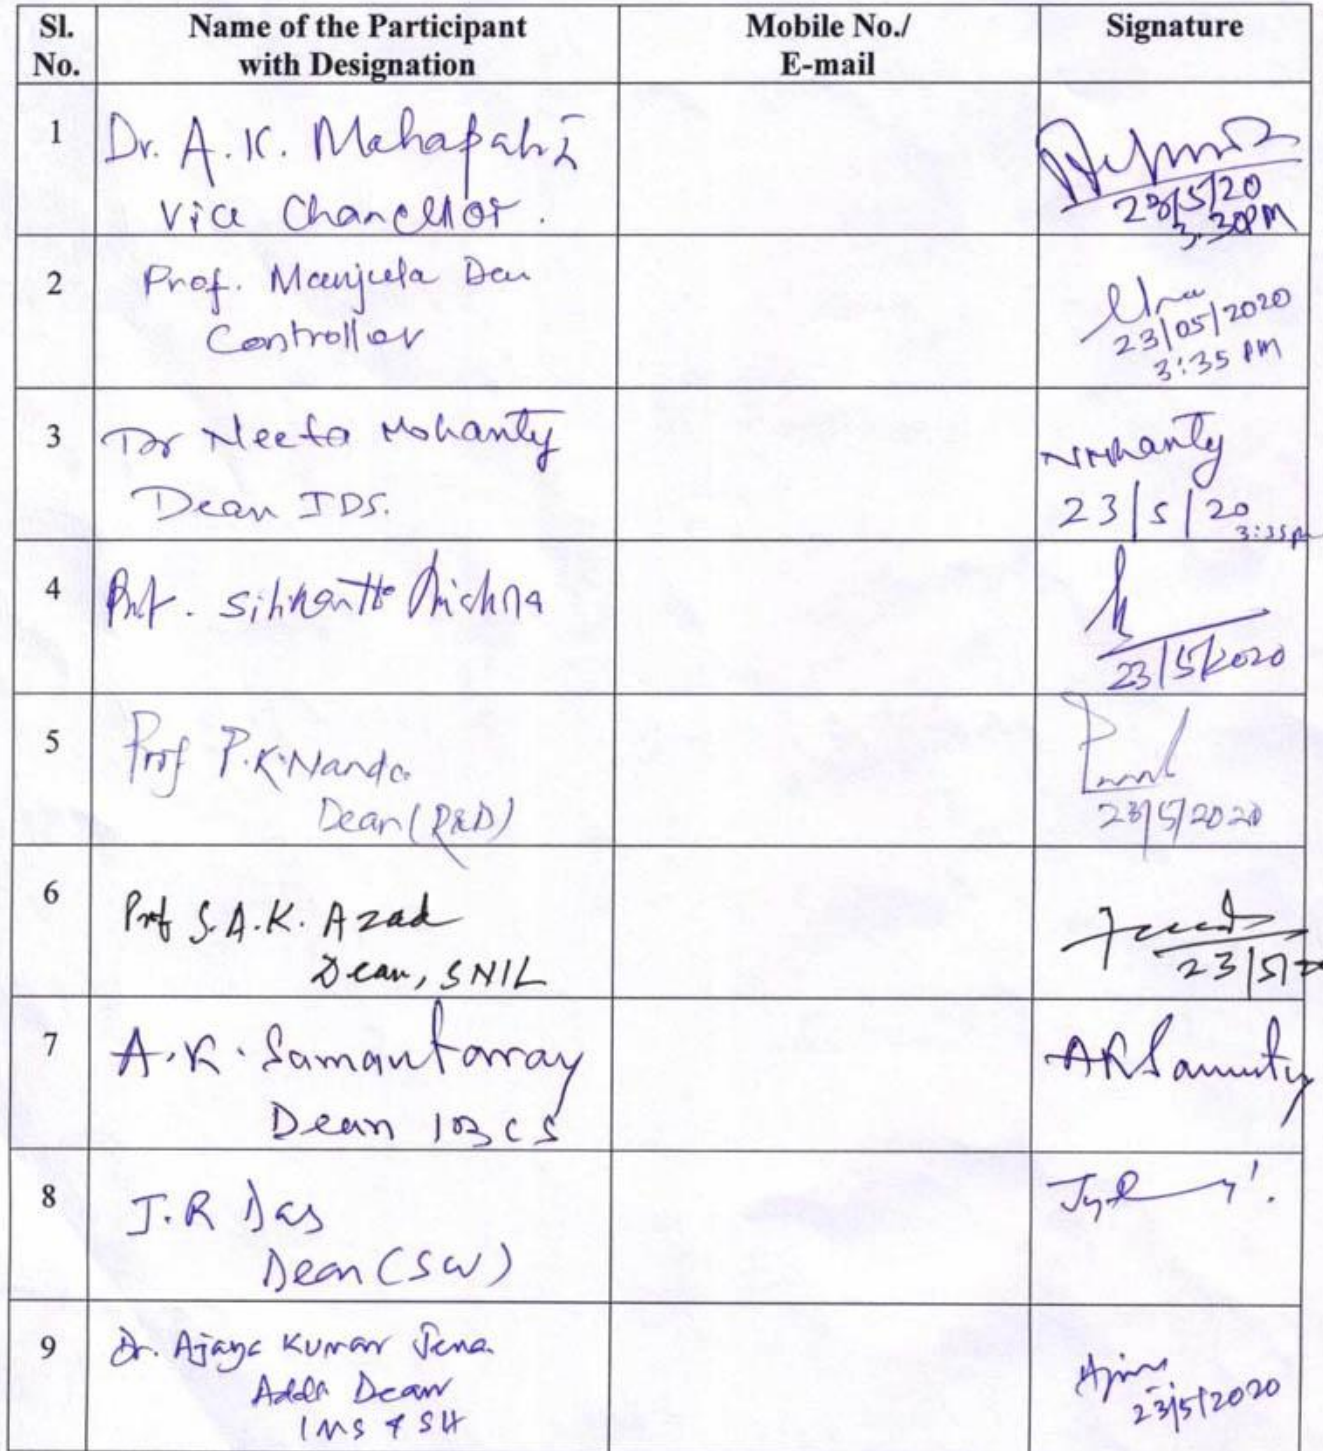 Sl. No.
Name of the Participant with Designation
Mobile No./ E-mail
Signature
1
Dr. A. K. Mahapatra
Vice Chancellor.
23/5/20
3:30PM
2
Prof. Manjula Das
Controller
23/05/2020
3:35 PM
3
Dr Neeta Mohanty
Dean IDS.
NMohanty
23/5/20
3:35pm
4
Prof. Sitikantha Mishra
23/5/2020
5
Prof P.K. Nanda
Dean (R&D)
23/5/2020
6
Prof S.A.K. Azad
Dean, SNIL
23/5/20
7
A.K. Samantaray
Dean IBCS
8
J.R Das
Dean (SW)
9
Dr. Ajaya Kumar Jena
Addl Dean
IMS & SH
23/5/2020